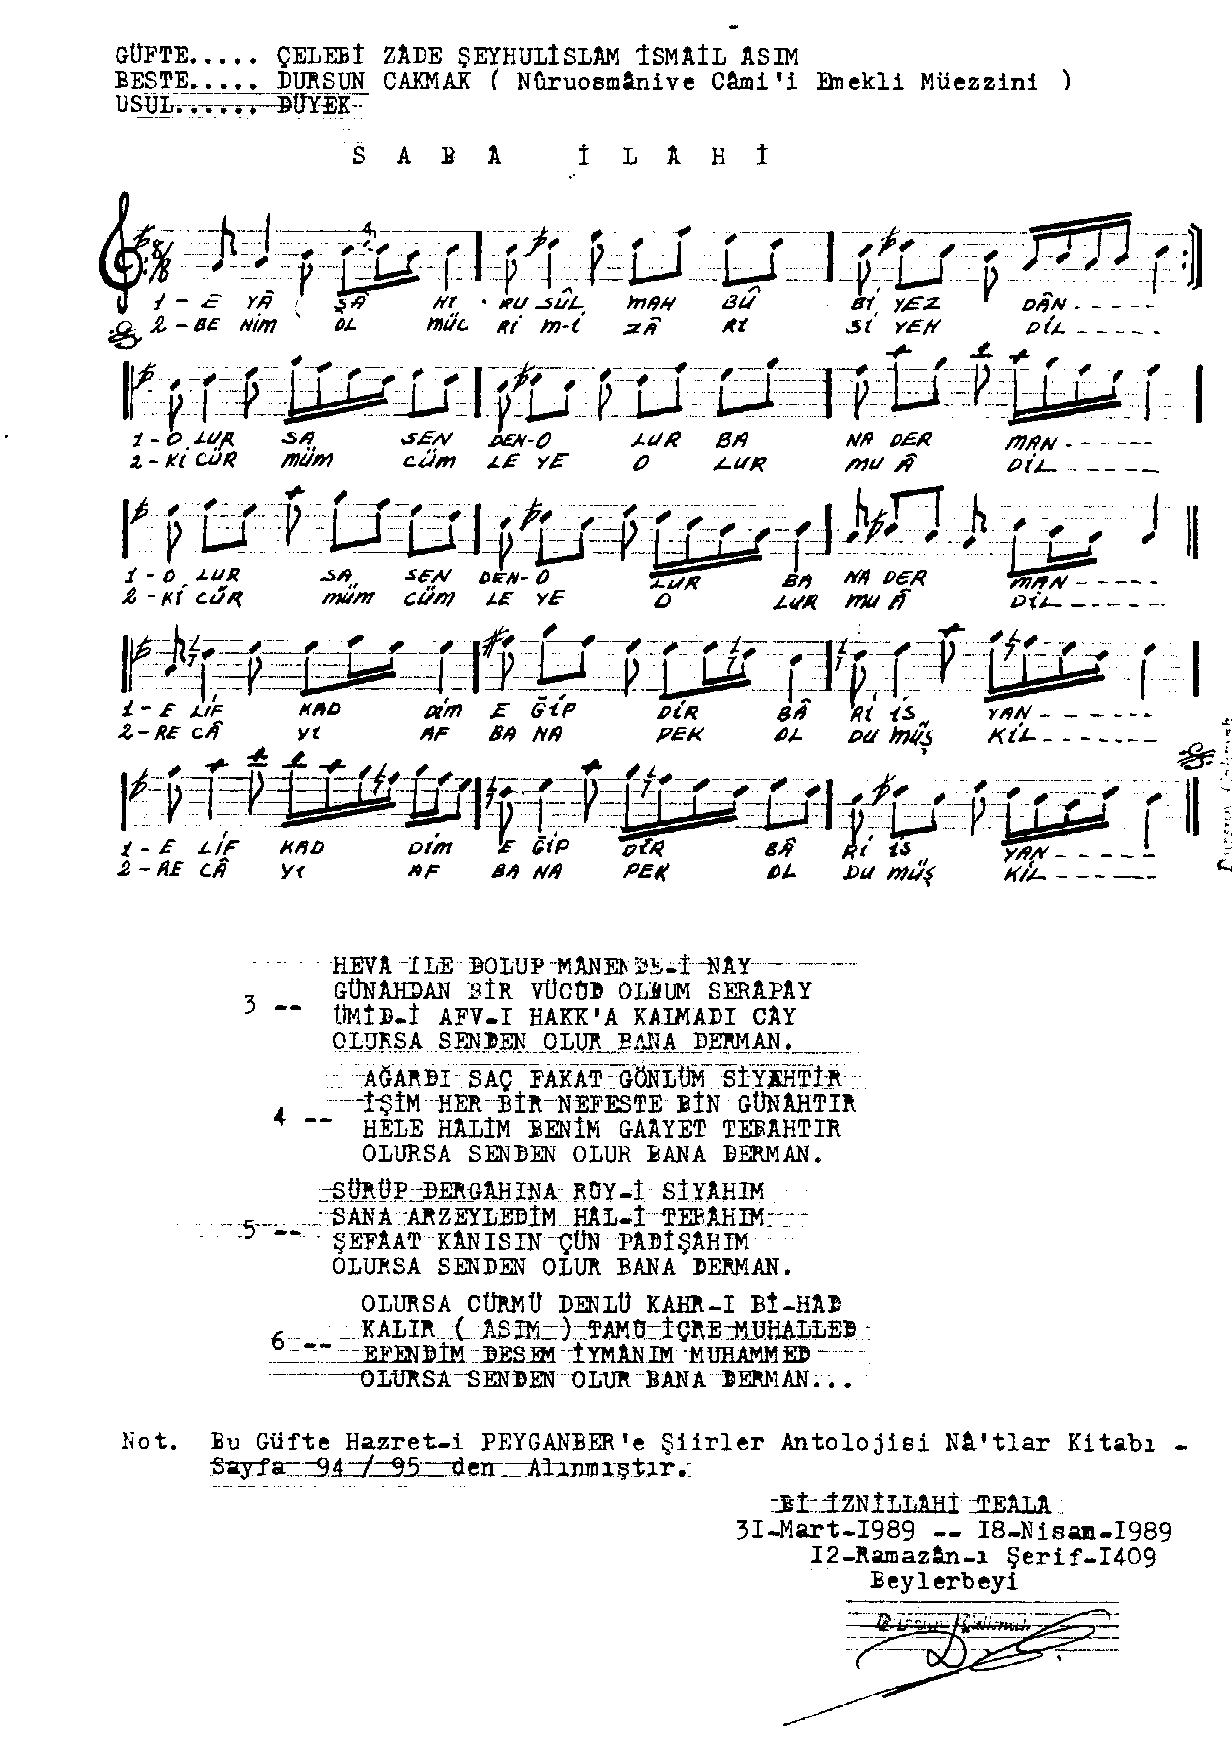 GÜFTE..... ÇELEBİ ZÂDE ŞEYHULİSLAM İSMAİL ASIM
BESTE..... DURSUN CAKMAK ( Nûruosmânive Câmi'i Emekli Müezzini )
USUL...... DÜYEK
S A B Â İ L Â H İ
1 - E YÂ ŞÂ Hİ RU SÛL MAH BÛ Bİ YEZ DÂN - - - - -
2 - BE NİM OL MÜC Rİ M-İ ZÂ Rİ Sİ YEH DİL - - - - -
1 - O LUR SA SEN DEN-O LUR BA NA DER MAN - - - - - -
2 - Kİ CÜR MÜM CÜM LE YE O LUR MU Â DİL - - - - - -
1 - O LUR SA SEN DEN-O LUR BA NA DER MAN - - - - -
2 - Kİ CÜR MÜM CÜM LE YE O LUR MU Â DİL - - - - - -
1 - E LİF KAD DİM E ĞİP DİR BÂ Rİ İS YAN - - - - - -
2 - RE CÂ YI AF BA NA PEK OL DU MÜŞ KİL - - - - - -
1 - E LİF KAD DİM E ĞİP DİR BÂ Rİ İS YAN - - - - -
2 - RE CÂ YI AF BA NA PEK OL DU MÜŞ KİL - - - - -
HEVA İLE DOLUP MANENDE-İ NAY
GÜNAHDAN BİR VÜCÛD OLDUM SERAPAY
3 -- ÜMİD-İ AFV-I HAKK'A KALMADI CAY
OLURSA SENDEN OLUR BANA DERMAN.
AĞARDI SAÇ FAKAT GÖNLÜM SİYAHTIR
İŞİM HER BİR NEFESTE BİN GÜNAHTIR
4 -- HELE HALİM BENİM GAAYET TEBAHTIR
OLURSA SENDEN OLUR BANA DERMAN.
SÜRÜP DERGAHINA RÛY-İ SİYAHIM
SANA ARZEYLEDİM HAL-İ TEBAHIM
5 -- ŞEFAAT KANISIN ÇÜN PADİŞAHIM
OLURSA SENDEN OLUR BANA DERMAN.
OLURSA CÜRMÜ DENLÜ KAHR-I Bİ-HAD
KALIR ( ASIM ) TAMU İÇRE MUHALLED
6 -- EFENDİM DESEM İYMÂNIM MUHAMMED
OLURSA SENDEN OLUR BANA DERMAN...
Not. Bu Güfte Hazret-i PEYGANBER'e Şiirler Antolojisi Nâ'tlar Kitabı -
Sayfa 94 / 95 den Alınmıştır.
Bİ İZNİLLAHİ TEALA
3I-Mart-I989 -- I8-Nisan-I989
I2-Ramazân-ı Şerif-I409
Beylerbeyi